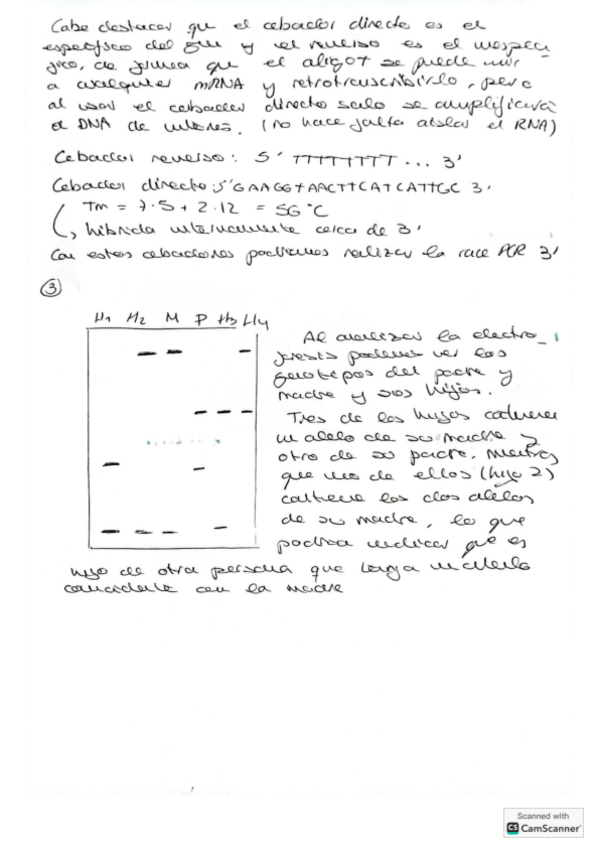 Cabe destacar que el cebador directo es el
específico del gen y el reverso es el inespecí
fico, de forma que el oligoT se puede unir
a cualquier mRNA y retrotranscribirlo, pero
al usar el cebador directo solo se amplificará
el DNA de interés. (no hace falta aislar el RNA)
Cebador reverso: 5' TTTTTTTT... 3'
Cebador directo: 5' GAAGGTAACTTCATCATTGC 3'
Tm = 7·5 + 2·12 = 56°C
hibrida internamente cerca de 3'
Con estos cebadores podríamos realizar la race PCR 3'
③
H1 H2 M P H3 H4
Al analizar la electro_
foresis podemos ver los
genotipos del padre y
madre y sus hijos.
Tres de los hijos contienen
un alelo de su madre y
otro de su padre, mientras
que uno de ellos (hijo 2)
contiene los dos alelos
de su madre, lo que
podría indicar que es
hijo de otra persona que tenga un alelo
coincidente con la madre
Scanned with
CS CamScanner